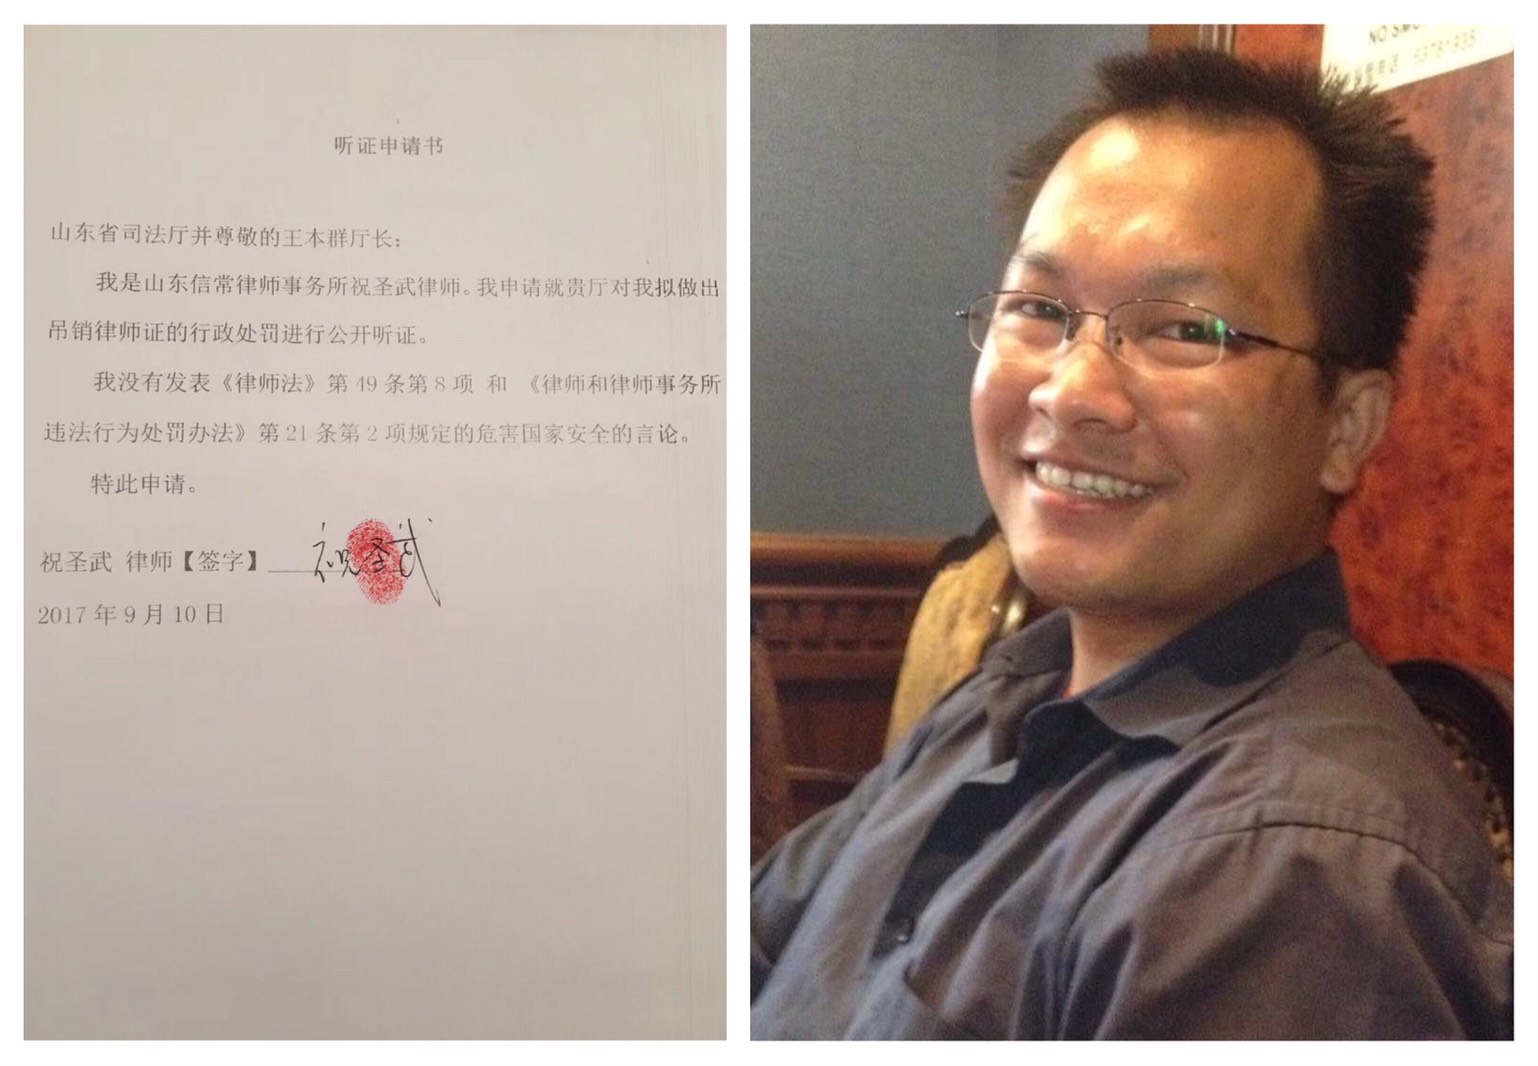 听证申请书
山东省司法厅并尊敬的王本群厅长：
我是山东信常律师事务所祝圣武律师。我申请就贵厅对我拟做出
吊销律师证的行政处罚进行公开听证。
我没有发表《律师法》第 49 条第 8 项 和 《律师和律师事务所
违法行为处罚办法》第 21 条第 2 项规定的危害国家安全的言论。
特此申请。
祝圣武 律师【签字】 祝圣武
2017 年 9 月 10 日
NO SMO
电话：63781935